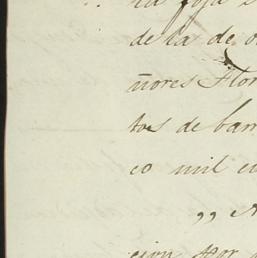 la foja
de la de
ñores Flor
tos de bar
co mil
,,
cion Por